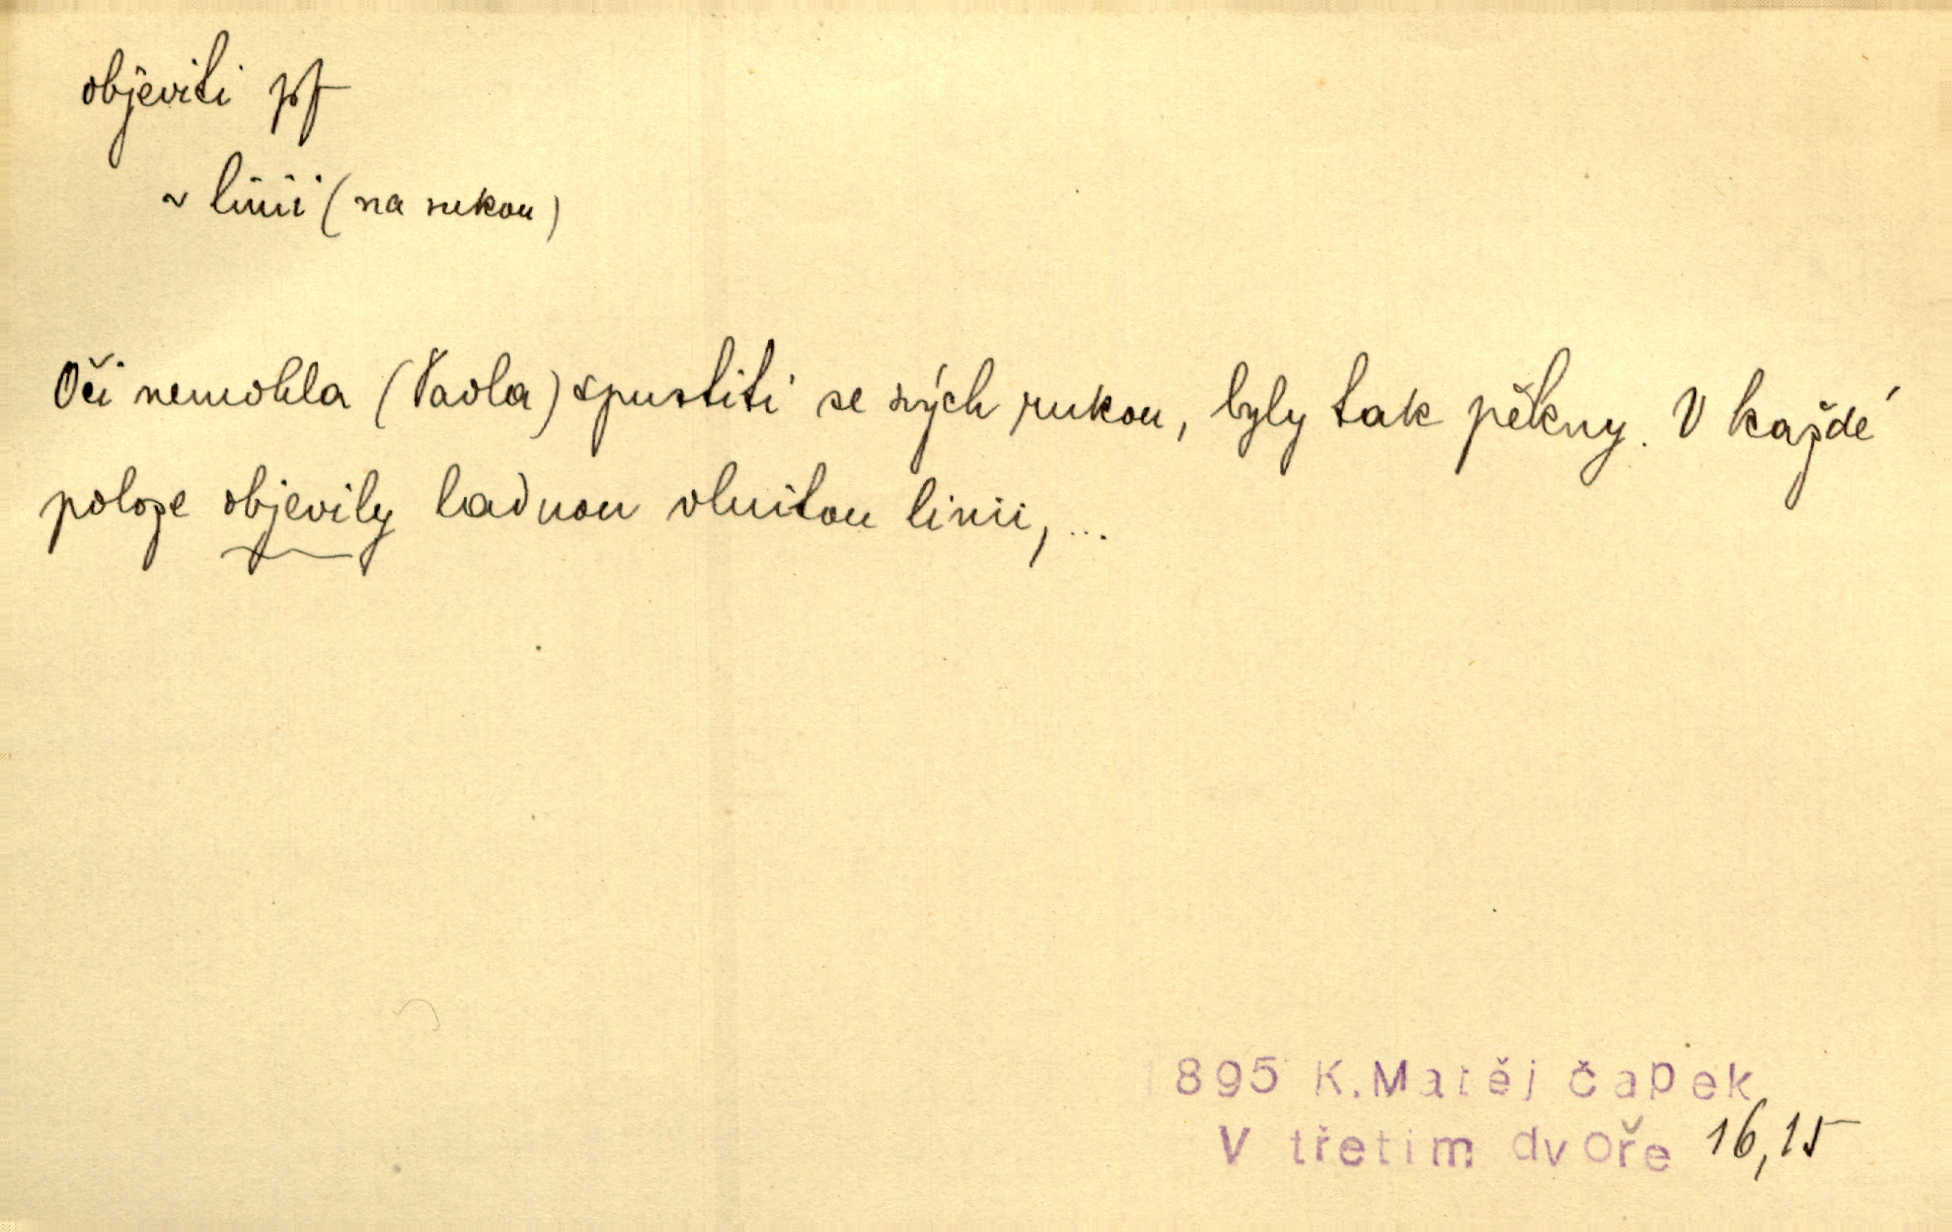 objeviti pf
~ linii (na rukou)
Oči nemohla (Pavla) spustiti se svých rukou, byly tak pěkny. V každé
poloze objevily ladnou vlnitou linii, ...
1895 K.Matěj čapek
V třetím dvoře 16,15